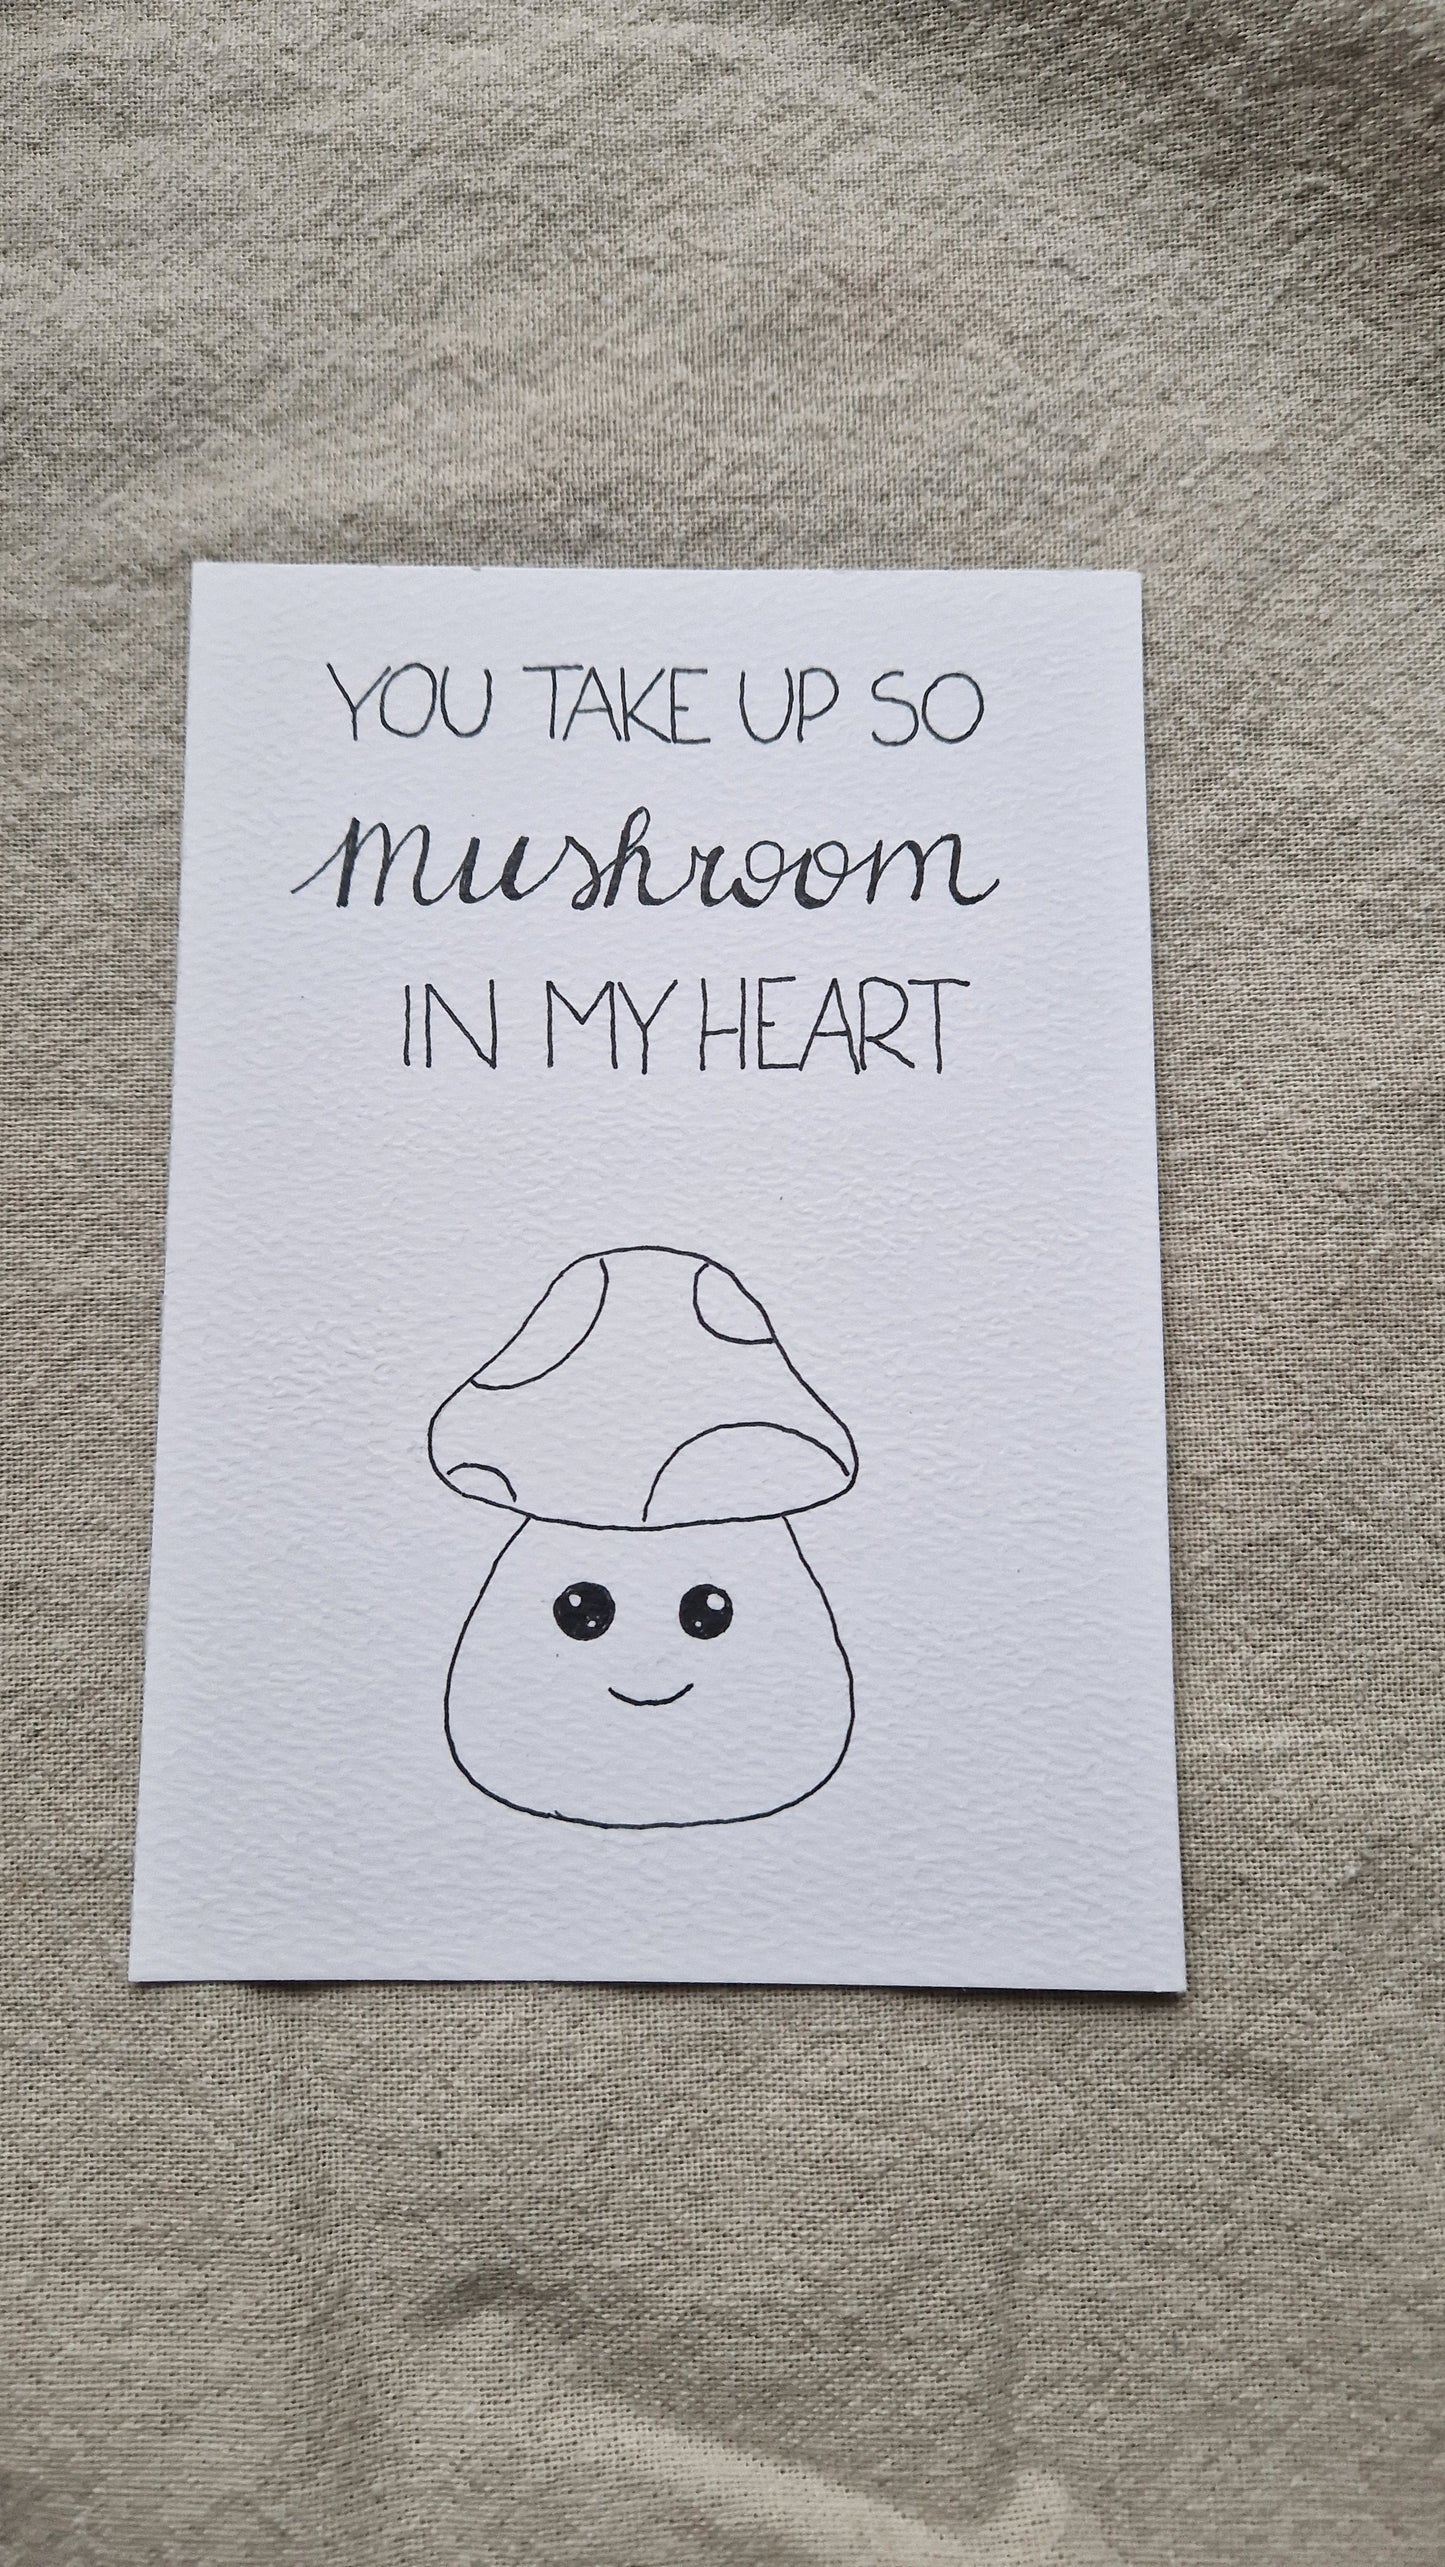 YOU TAKE UP SO
mushroom
IN MY HEART